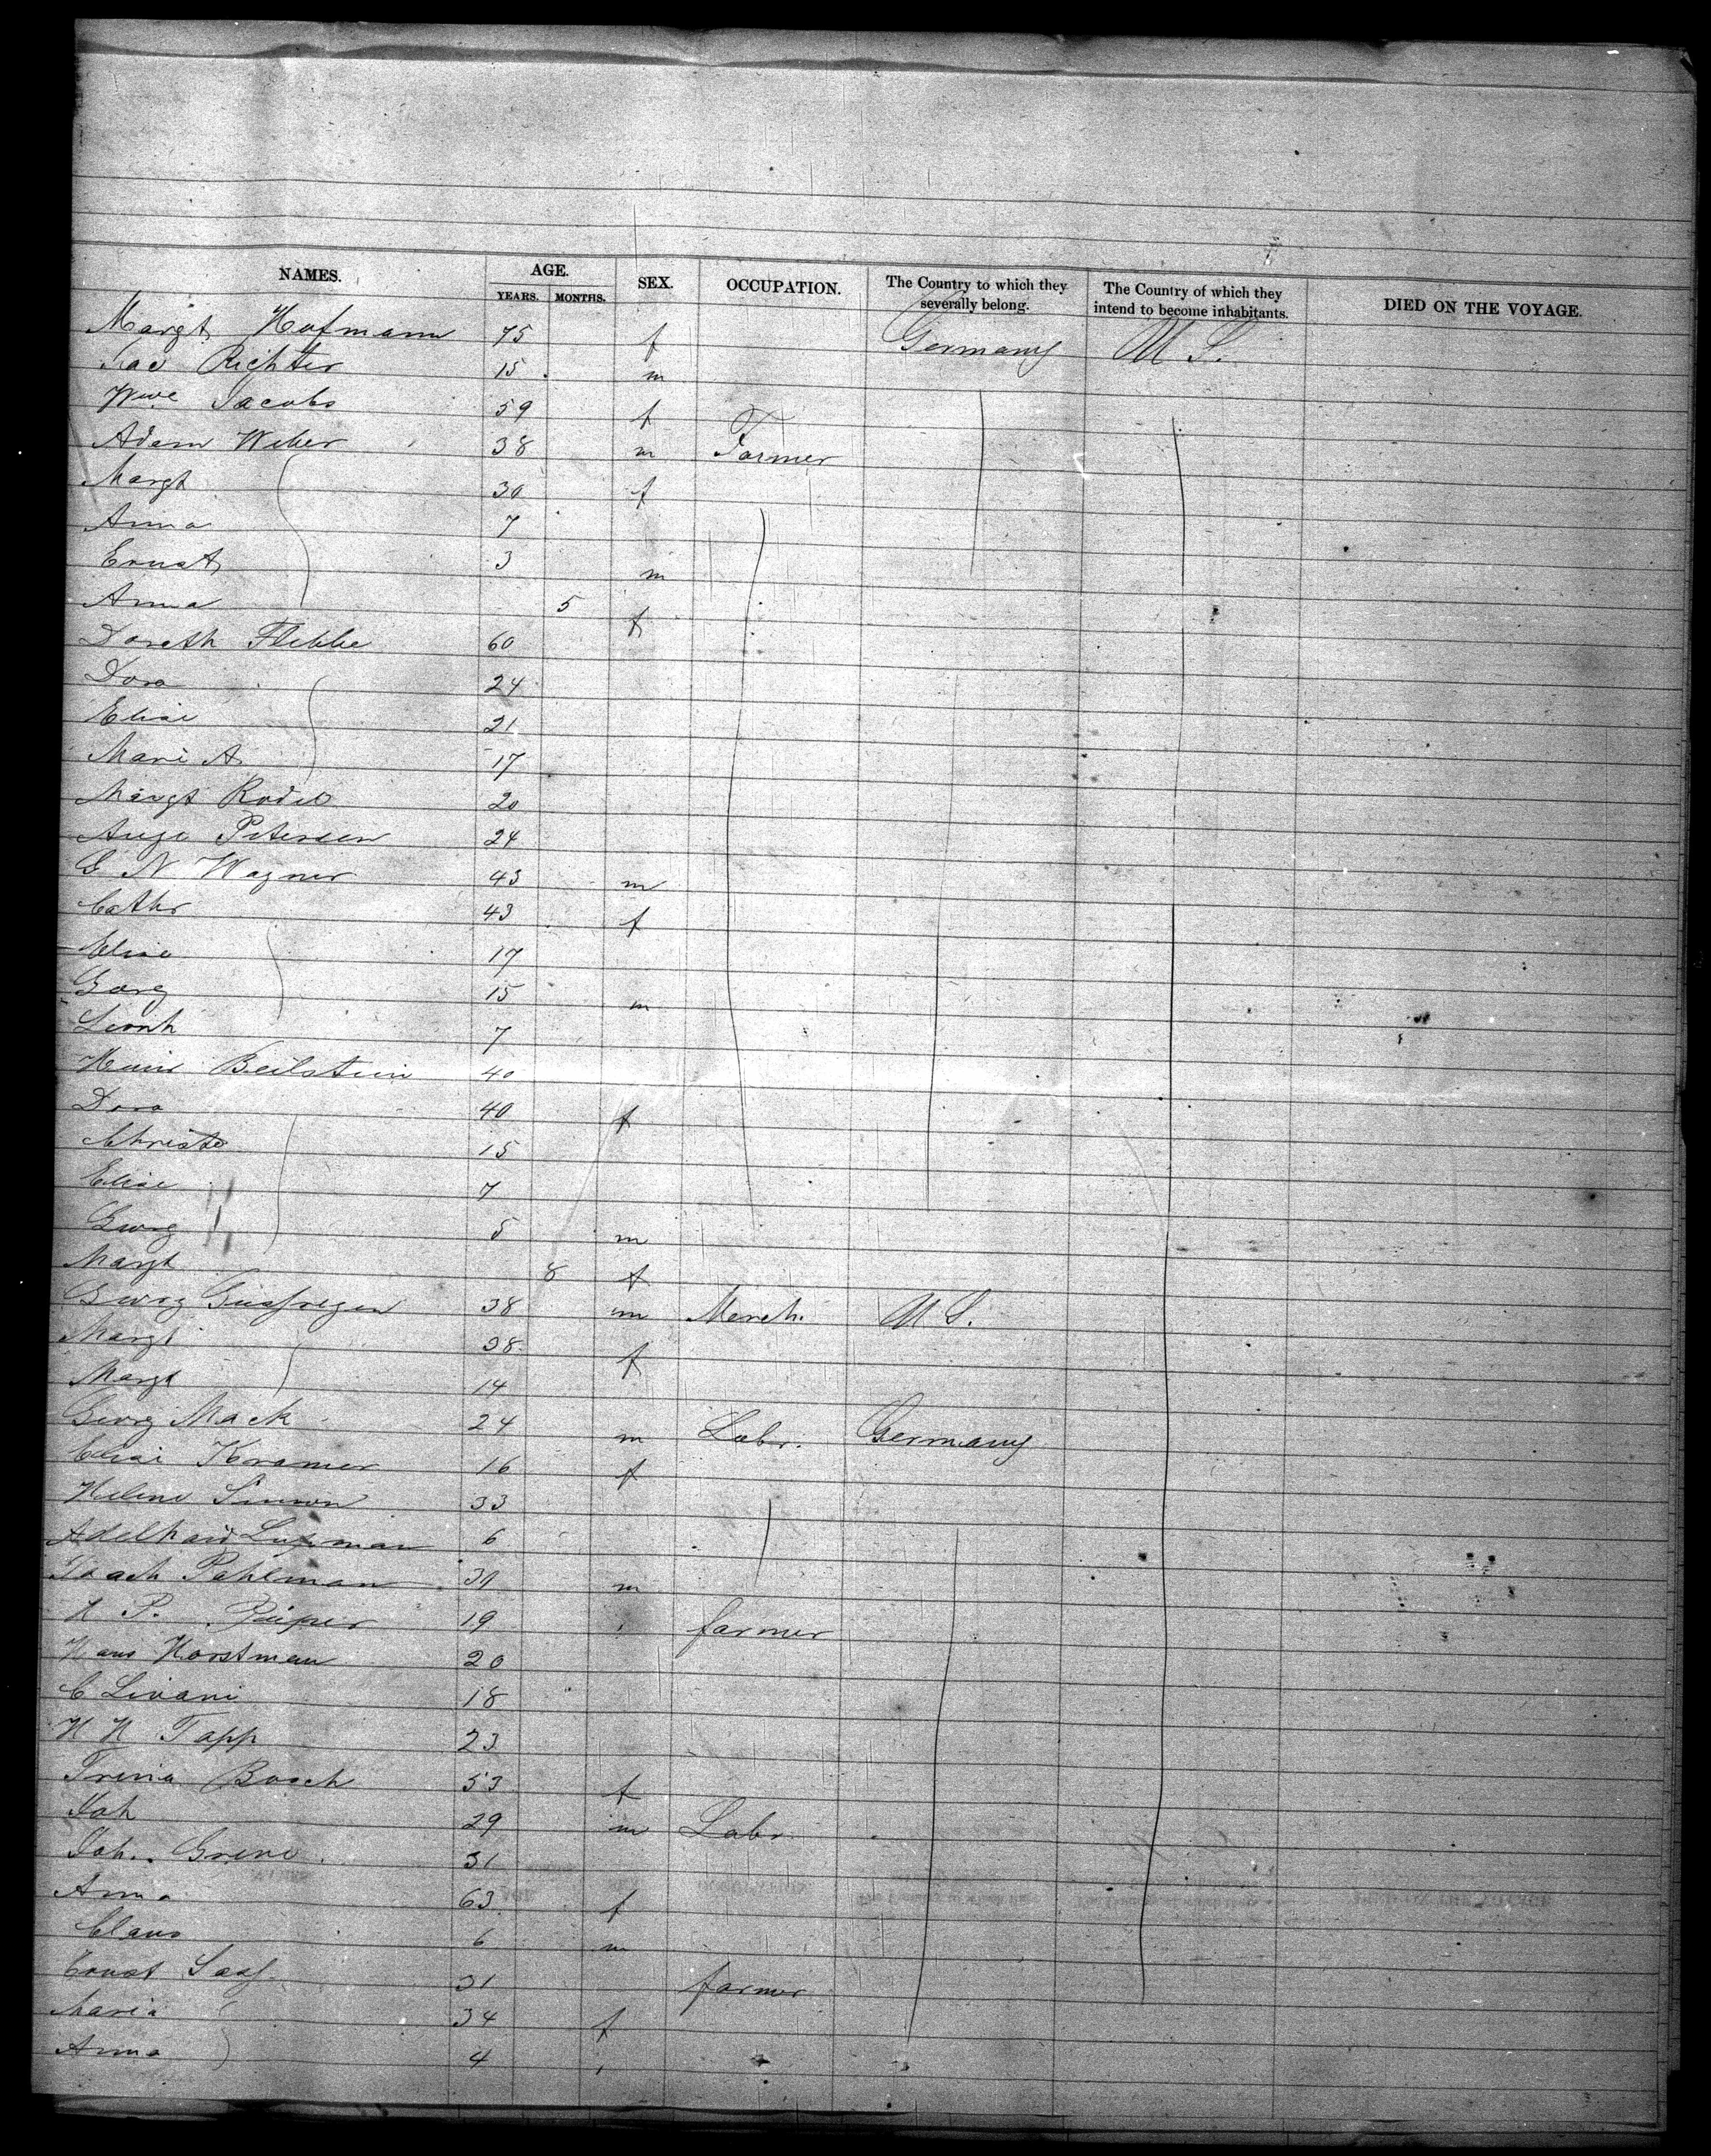 NAMES. AGE. YEARS. MONTHS. SEX. OCCUPATION. The Country to which they severally belong. The Country of which they intend to become inhabitants. DIED ON THE VOYAGE.
Margt Hofmann 75 f Germany U S.
Richter 15 m
Wwe Jacobs 59 f
Adam Weber 38 m Farmer
Margt 30 f
Anna 7
Ernst 3 m
Anna 5 f
Doroth Flebbe 60
Dora 24
Elise 21
Marie A 17
Margt 20
Petersen 24
G N Wagner 43 m
Cathr 43 f
Elise 17
Georg 15 m
Leonh 7
Heinr Beilstein 40
Dora 40 f
Christe 15
Elise 7
Georg 5 m
Margt 8 f
Georg 38 m Merch. U S.
Margt 38 f
Margt 14
Georg Mack 24 m Labr. Germany
Elise Kramer 16 f
Helene Simon 33
Adelhaid 6
Joach Pahlman 31 m
H P. Pieper 19 farmer
Hans Horstman 20
C 18
H H Tapp 23
Trina Bosch 53 f
Joh 29 m Labr.
Joh. Greve 31
Anna 63 f
Claus 6 m
Ernst Sass 31 farmer
Maria 34 f
Anna 4